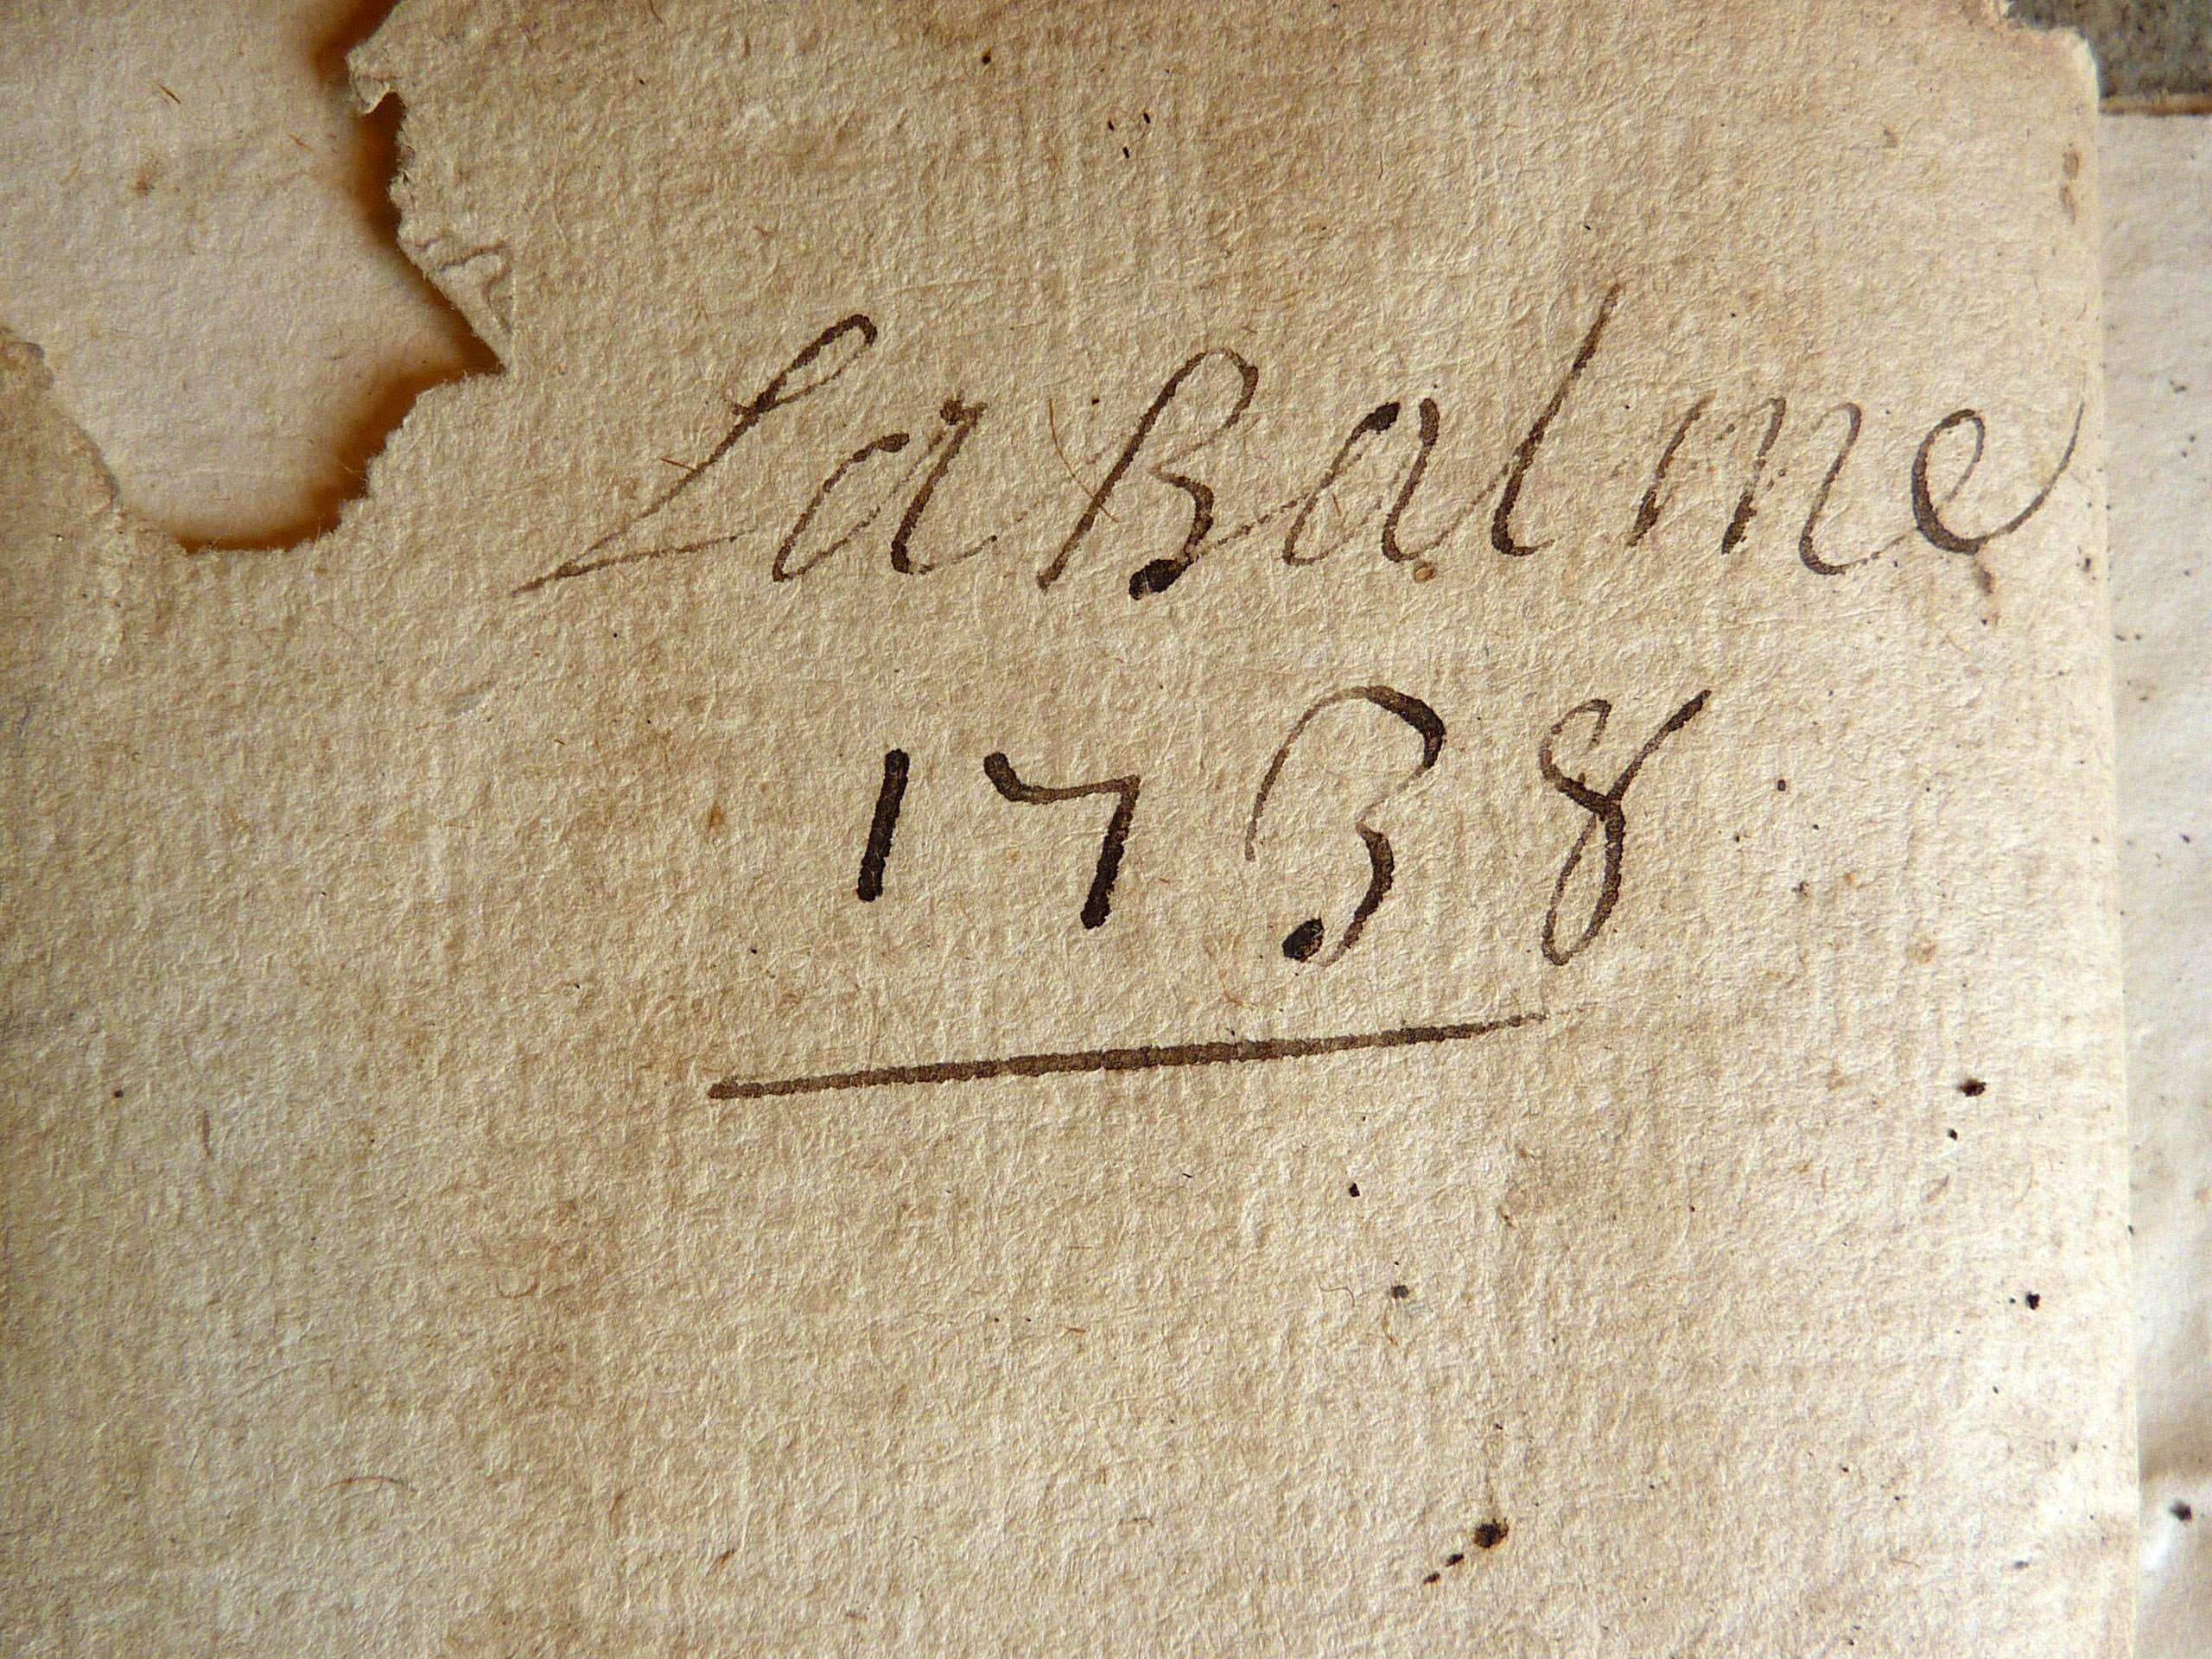 La Balme
1738